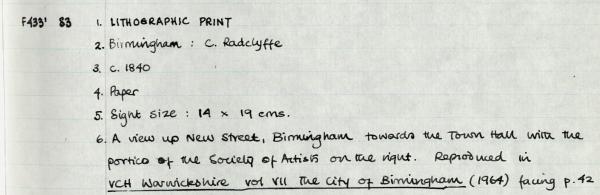 F433' 83 1. LITHOGRAPHIC PRINT
2. Birmingham : C. Radclyffe
3. c. 1840
4. Paper
5. Sight size : 14 x 19 cms.
6. A view up New Street, Birmingham towards the Town Hall with the
portico of the Society of Artists on the right. Reproduced in
VCH Warwickshire vol VII The City of Birmingham (1964) facing p. 42